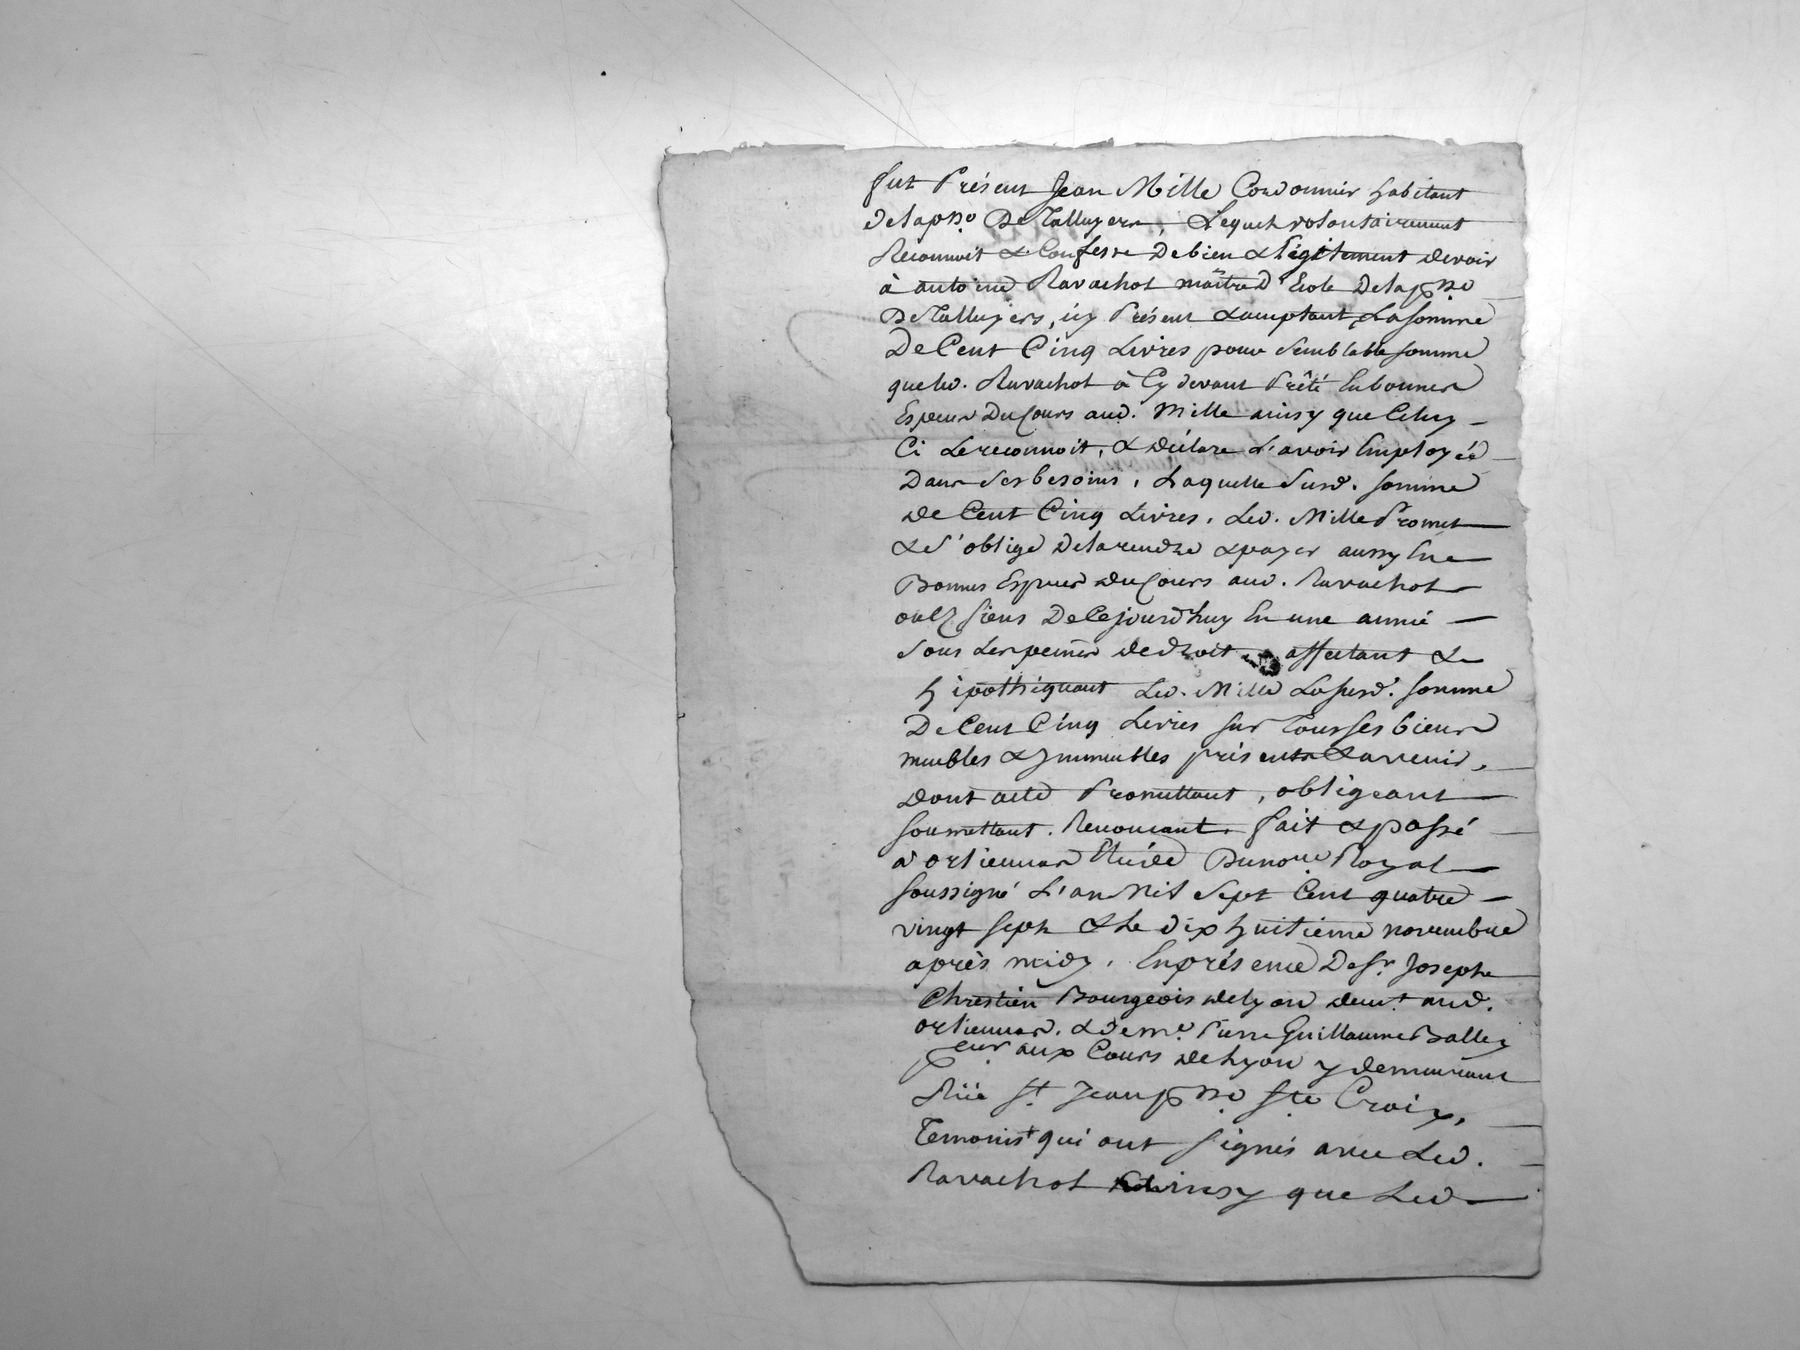 fut Présent Jean Mille Cordonnier habitant
De la psse De Talluyers, Lequel volontairement
Reconnoit & Confesse De bien & légitement devoir
à antoine Ravachol maître D'Ecole De la psse
De Talluyers, icy Présent & acceptant La somme
De Cent Cinq Livres pour semblable somme
que led. Ravachol à Cy devant Prêté En bonnes
Especes Du Cours aud. Mille ainsy que Celuy
Ci Le reconnoit, & déclare L'avoir Employée
Dans ses besoins, Laquelle susd. somme
de Cent Cinq Livres, Led. Mille Promet
& s'oblige De la rendre & payer aussy En
Bonnes Especes du Cours aud. Ravachol
ou ez siens De Cejourd'huy En une année
sous Les peines de droit affectant &
hipothiquant Led. Mille La susd. somme
De Cent Cinq Livres sur Tous ses biens
meubles & ymmeubles présents & avenir,
Dont acte Promettant, obligeant
soumettant, Renonçant, fait & passé
à orliennas Etude Du nore Royal
soussigné L'an Mil sept Cent quatre
vingt sept & Le dix huitième novembre
après midy, En présence De sr. Joseph
Chrestien Bourgeois de Lyon demt. aud.
orliennas, & de me. Pierre Guillaume Balley
pcur aux Cours de Lyon y demeurant
Rüe St. Jean psse Ste Croix,
Temoins qui ont signés avec Led.
Ravachol ainsy que Led